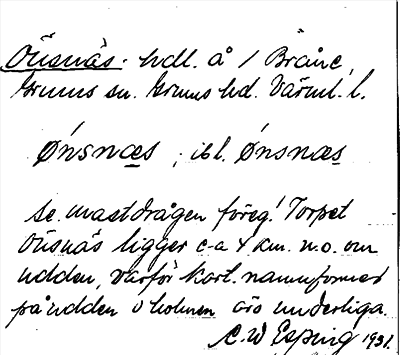 Öusnäs. hdl. å / Bråne,
Grums sn. Grums hd. Värml. l.
Ǿnsnæs ; ibl. Ǿnsnæs
se. mastdrågen föreg! Torpet
Öusnäs ligger c-a 4 km. n.o. om
udden, varför kart. namnformer
på udden o holmen äro underliga.
C.W Esping 1931.